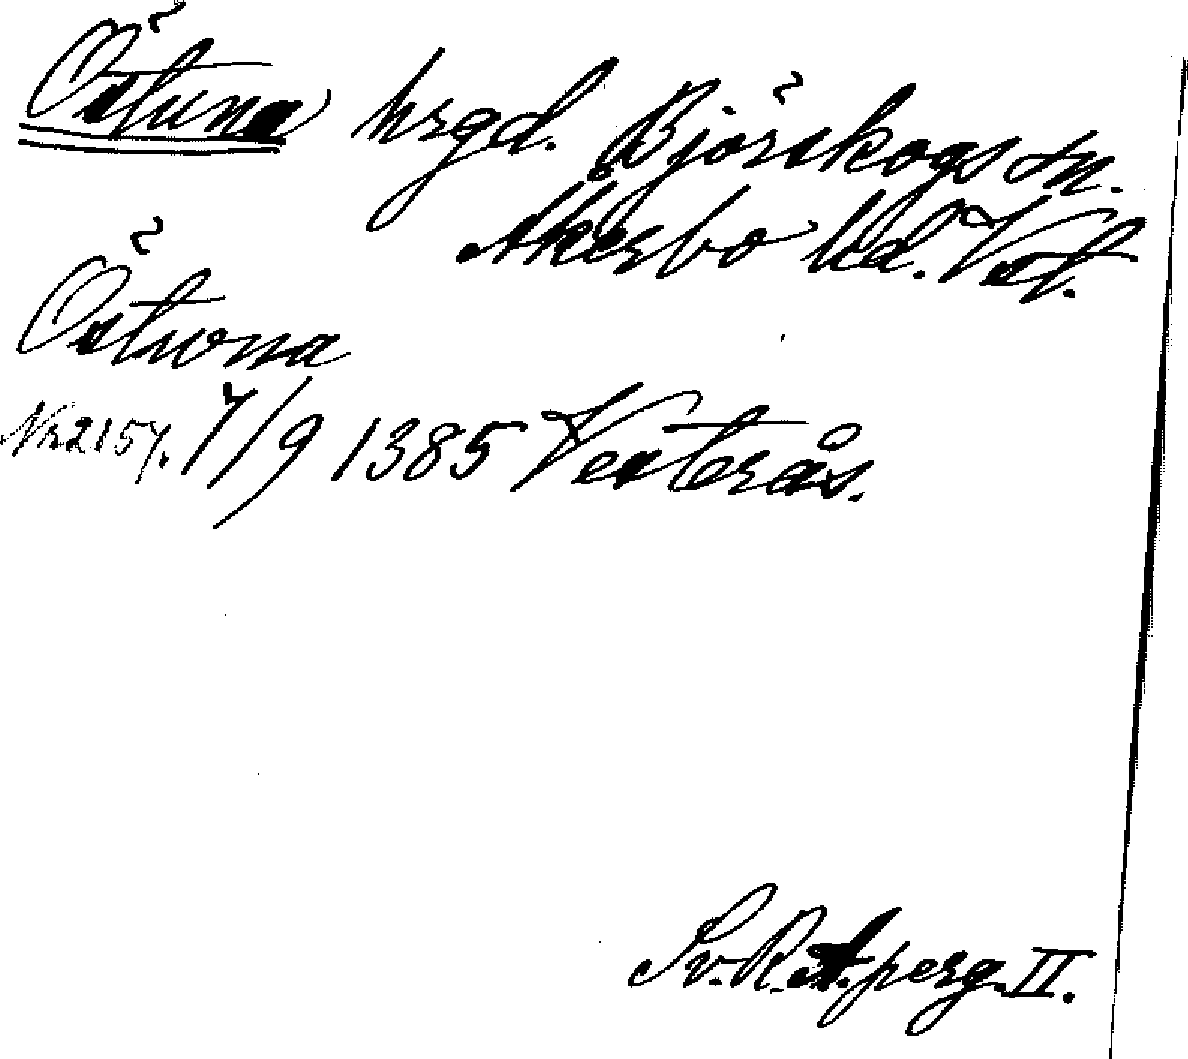 Östuna hrgd. Björskogs sn.
Åkerbo hd. Vstl.
Östwna
Nr 2157. 7/9 1385 Vesterås.
Sv. R. A. perg. II.